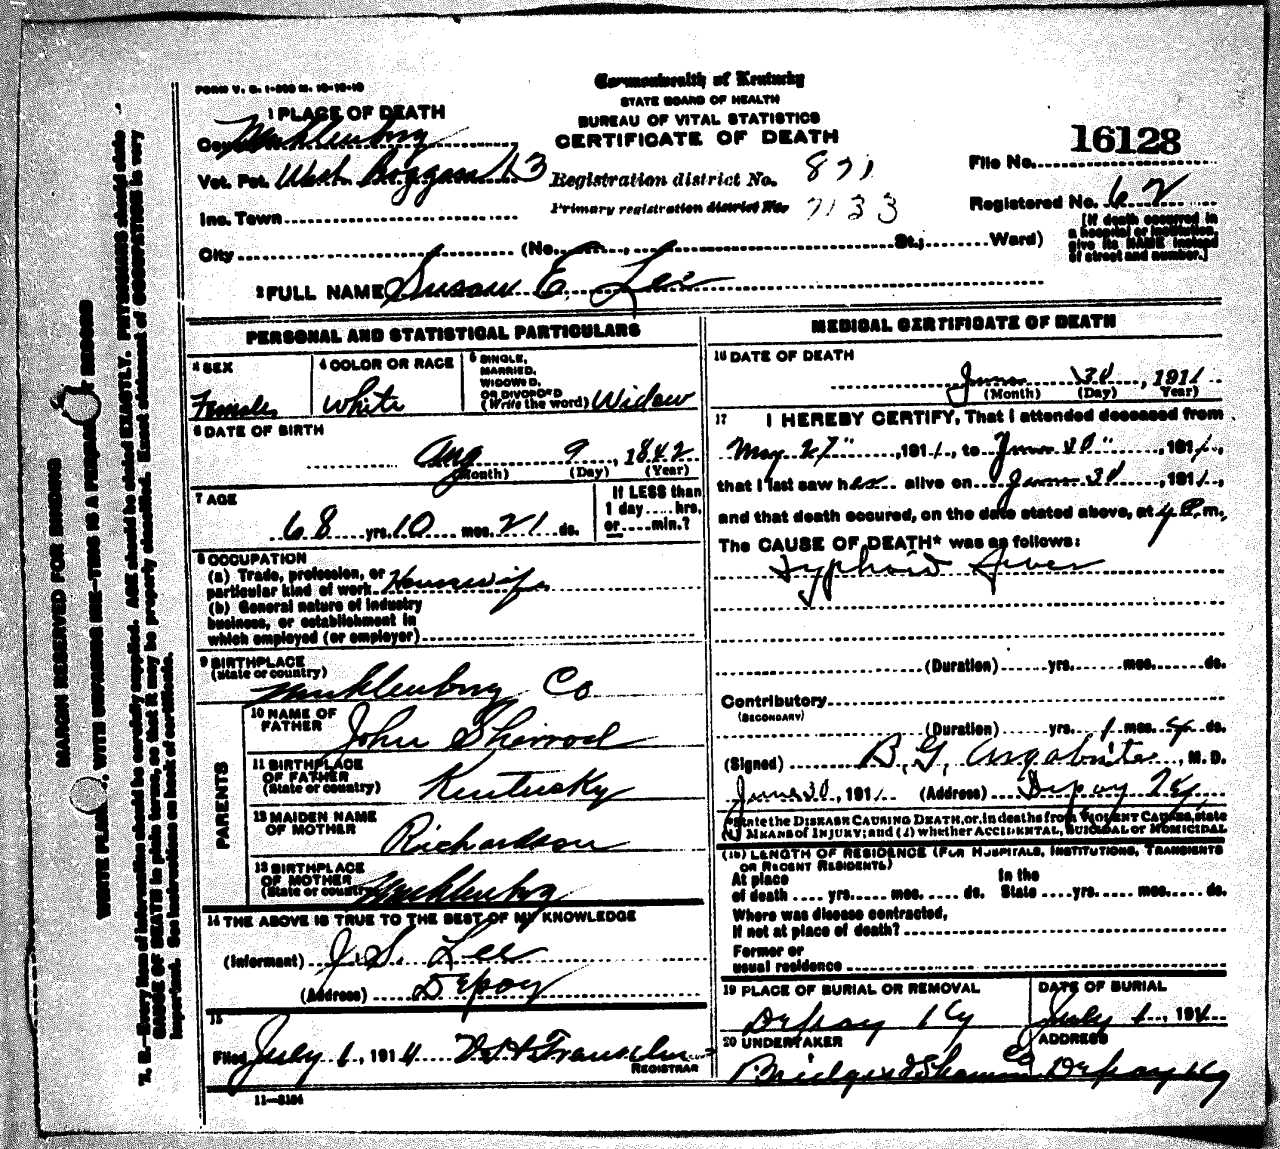 FORM V. S. 1-350 M. 10-10-10
Commonwealth of Kentucky
STATE BOARD OF HEALTH
BUREAU OF VITAL STATISTICS
CERTIFICATE OF DEATH
1 PLACE OF DEATH
County Muhlenburg
Vot. Pct. West Boggan 13
Inc. Town
City (No. , St.; Ward)
Registration district No. 871
Primary registration district No. 7133
File No. 16128
Registered No. 62
[If death occurred in
a hospital or institution,
give its NAME instead
of street and number.]
2 FULL NAME Susan E. Lee
PERSONAL AND STATISTICAL PARTICULARS
3 SEX
Female
4 COLOR OR RACE
White
5 SINGLE,
MARRIED,
WIDOWED,
OR DIVORCED
(Write the word) Widow
6 DATE OF BIRTH
Aug 9, 1842
(Month) (Day) (Year)
7 AGE
68 yrs. 10 mos. 21 ds.
If LESS than
1 day .... hrs.
or .... min.?
8 OCCUPATION
(a) Trade, profession, or
particular kind of work Housewife
(b) General nature of industry
business, or establishment in
which employed (or employer)
9 BIRTHPLACE
(State or country)
Muhlenburg Co
PARENTS
10 NAME OF
FATHER John Sherrod
11 BIRTHPLACE
OF FATHER
(State or country) Kentucky
12 MAIDEN NAME
OF MOTHER Richardson
13 BIRTHPLACE
OF MOTHER
(State or country) Muhlenburg
14 THE ABOVE IS TRUE TO THE BEST OF MY KNOWLEDGE
(Informant) J. S. Lee
(Address) Depoy
15
Filed July 1, 1911
REGISTRAR
11-3184
MEDICAL CERTIFICATE OF DEATH
16 DATE OF DEATH
June 30, 1911
(Month) (Day) (Year)
17 I HEREBY CERTIFY, That I attended deceased from
May 27", 1911, to June 30", 1911,
that I last saw her alive on June 30, 1911,
and that death occured, on the date stated above, at 4 P.m.
The CAUSE OF DEATH* was as follows:
Typhoid Fever
(Duration) yrs. mos. ds.
Contributory
(SECONDARY)
(Duration) yrs. 1 mos. 4 ds.
(Signed) B. G. Argabrite, M. D.
June 30, 1911 (Address) Depoy Ky
*State the DISEASE CAUSING DEATH, or, in deaths from VIOLENT CAUSES, state
(1) MEANS of INJURY; and (2) whether ACCIDENTAL, SUICIDAL or HOMICIDAL
(18) LENGTH OF RESIDENCE (FOR HOSPITALS, INSTITUTIONS, TRANSIENTS
OR RECENT RESIDENTS)
At place
of death .... yrs. .... mos. .... ds.
In the
State .... yrs. .... mos. .... ds.
Where was disease contracted,
if not at place of death?
Former or
usual residence
19 PLACE OF BURIAL OR REMOVAL
Depoy Ky
DATE OF BURIAL
July 1, 1911
20 UNDERTAKER
Bridges & Co
ADDRESS
Depoy Ky
MARGIN RESERVED FOR BINDING
WRITE PLAINLY, WITH UNFADING INK—THIS IS A PERMANENT RECORD
N. B.—Every item of information should be carefully supplied. AGE should be stated EXACTLY. PHYSICIANS should state
CAUSE OF DEATH in plain terms, so that it may be properly classified. Exact statement of OCCUPATION is very
important. See instructions on back of certificate.